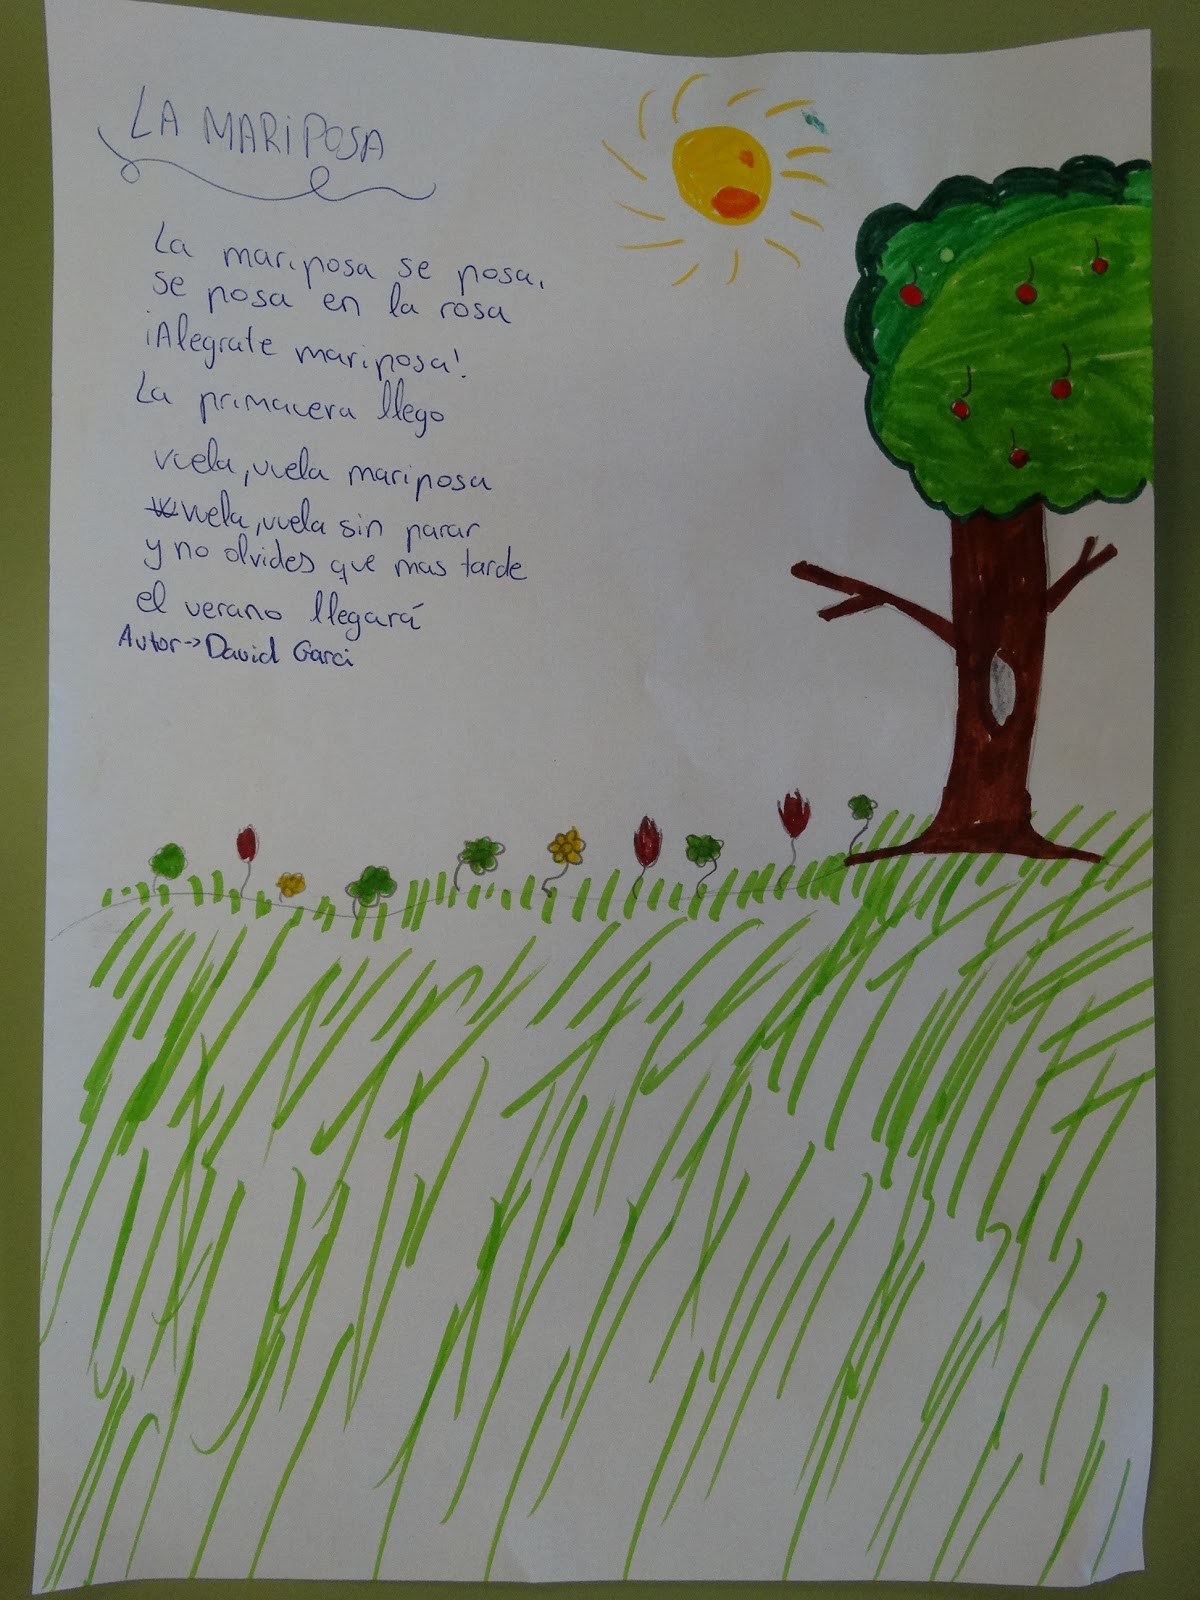 LA MARiPOSA
La mariposa se posa,
se posa en la rosa
¡Alegrate mariposa!
La primavera llego
vuela, vuela mariposa
vuela, vuela sin parar
y no olvides que mas tarde
el verano llegará
Autor->David Garci